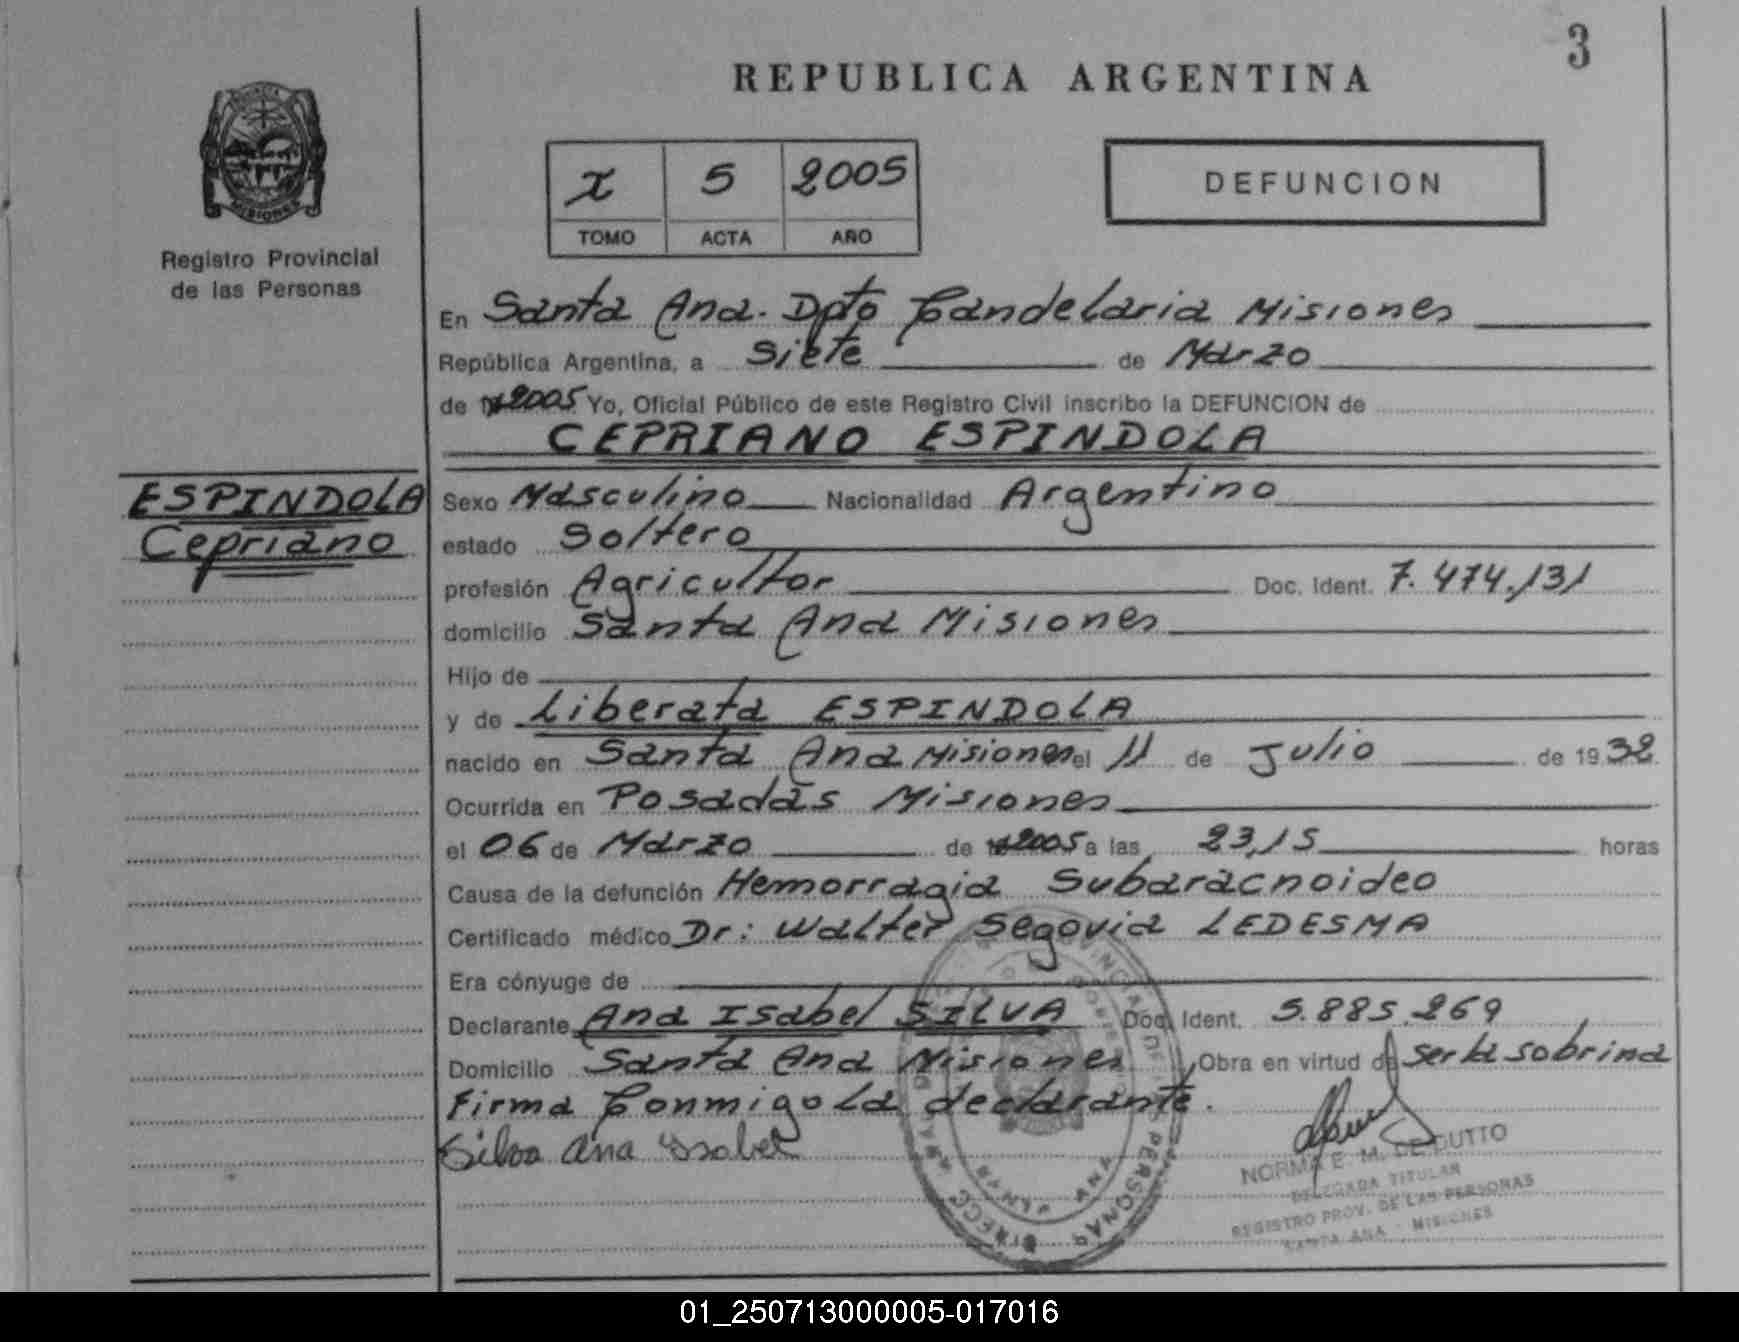 3
REPUBLICA ARGENTINA
PROVINCIA
MISIONES
Registro Provincial
de las Personas
I 5 2005
TOMO ACTA AÑO
DEFUNCION
En Santa Ana. Dpto Candelaria Misiones
República Argentina, a Siete de Marzo
de 2005 Yo, Oficial Público de este Registro Civil inscribo la DEFUNCION de
CEPRIANO ESPINDOLA
ESPINDOLA
Cepriano
Sexo Masculino Nacionalidad Argentino
estado Soltero
profesión Agricultor Doc. Ident. 7.474.131
domicilio Santa Ana Misiones
Hijo de
y de Liberata ESPINDOLA
nacido en Santa Ana Misiones el 11 de Julio de 1932
Ocurrida en Posadas Misiones
el 06 de Marzo de 2005 a las 23,15 horas
Causa de la defunción Hemorragia Subaracnoideo
Certificado médico Dr: Walter Segovia LEDESMA
Era cónyuge de
Declarante Ana Isabel SILVA Doc. Ident. 5.885.269
Domicilio Santa Ana Misiones Obra en virtud de ser la sobrina
Firma Conmigo la declarante.
Silva Ana Ysabel
NORMA E. M. DE DUTTO
DELEGADA TITULAR
REGISTRO PROV. DE LAS PERSONAS
SANTA ANA - MISIONES
01_250713000005-017016